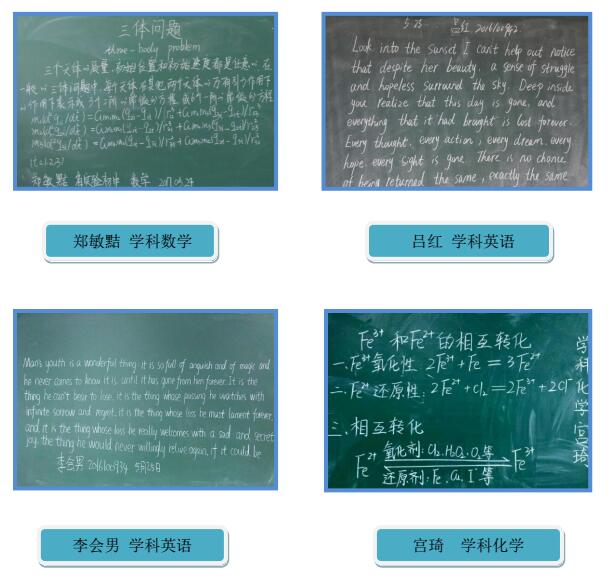 三体问题
three-body problem
三个天体的质量、初始位置和初始速度都是任意的. 在
一般的三体问题中, 每个天体在其他两个天体的万有引力作用下
it=1.2.3)
郑敏黠 学科数学
5.25 吕红
Look into the sunset I can't help out notice
that despite her beauty. a sense of struggle
and hopeless surround the sky. Deep inside
you realize that this day is gone, and
everything that it had brought is lost forever.
Every thought, every action, every dream, every
hope, every sight is gone. There is no chance
of being returned the same, exactly the same
吕红 学科英语
Man's youth is a wonderful thing: it is so full of anguish and of magic and
he never comes to know it is, until it has gone from him forever. It is the
thing he can't bear to lose, it is the thing whose passing he watches with
infinite sorrow and regret, it is the thing whose loss he must lament forever,
and it is the thing whose loss he really welcomes with a sad and secret
joy, the thing he would never willingly relive again, if it could be.
李会男 2016100934 5月25日
李会男 学科英语
Fe³⁺ 和Fe²⁺的相互转化
一. Fe³⁺氧化性: 2Fe³⁺+Fe = 3Fe²⁺
二. Fe²⁺ 还原性: 2Fe²⁺+Cl₂=2Fe³⁺+2Cl⁻
三. 相互转化
Fe²⁺ 氧化剂: Cl₂.H₂O₂.O₂等 Fe³⁺
还原剂: Fe.Cu.I⁻等
学科化学宫琦
宫琦 学科化学